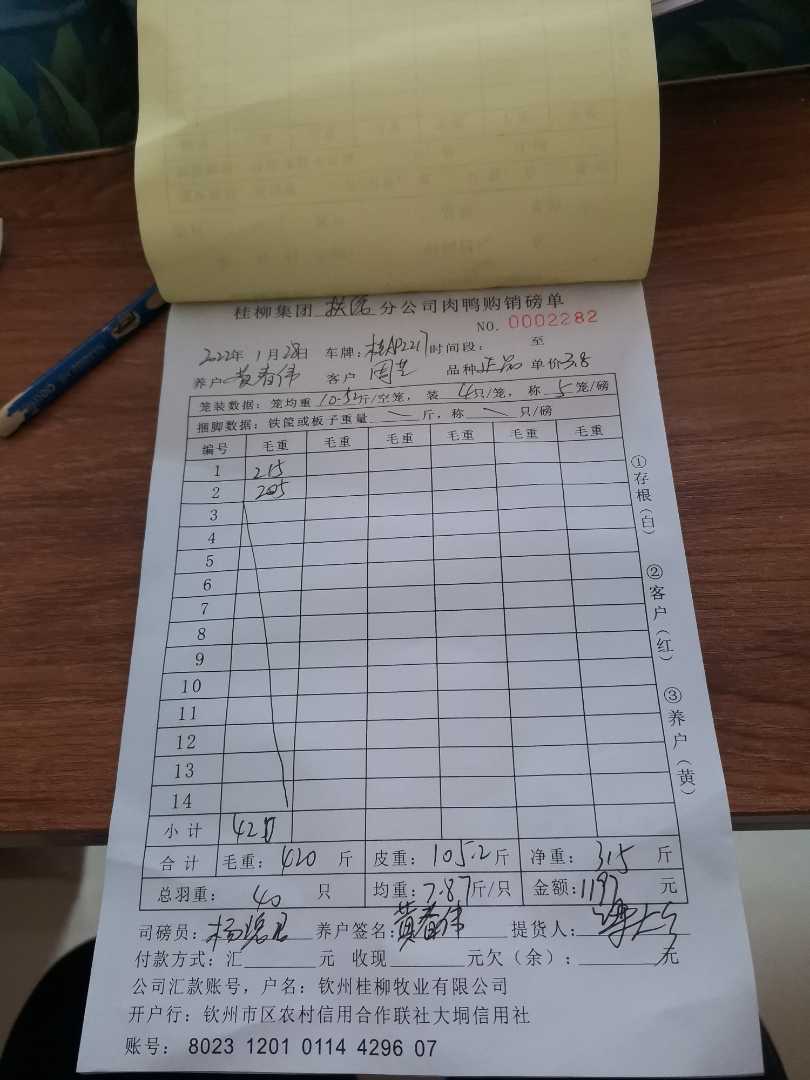 桂柳集团 扶绥 分公司肉鸭购销磅单
NO. 0002282
2022年 1月28日 车牌: 桂AP2217 时间段: 至
养户 黄春伟 客户 周芝 品种 正品 单价 3.8
笼装数据: 笼均重 10.52斤/空笼, 装 4只/笼, 称 5笼/磅
捆脚数据: 铁筐或板子重量 斤, 称 只/磅
编号 毛重 毛重 毛重 毛重 毛重 毛重
1 215
2 205
3
4
5
6
7
8
9
10
11
12
13
14
小计 420
合计 毛重: 420 斤 皮重: 105.2斤 净重: 315 斤
总羽重: 40 只 均重: 7.87斤/只 金额: 1197 元
司磅员: 养户签名: 黄春伟 提货人:
付款方式: 汇 元 收现 元欠(余): 元
公司汇款账号, 户名: 钦州桂柳牧业有限公司
开户行: 钦州市区农村信用合作联社大垌信用社
账号: 8023 1201 0114 4296 07
①存根(白)
②客户(红)
③养户(黄)